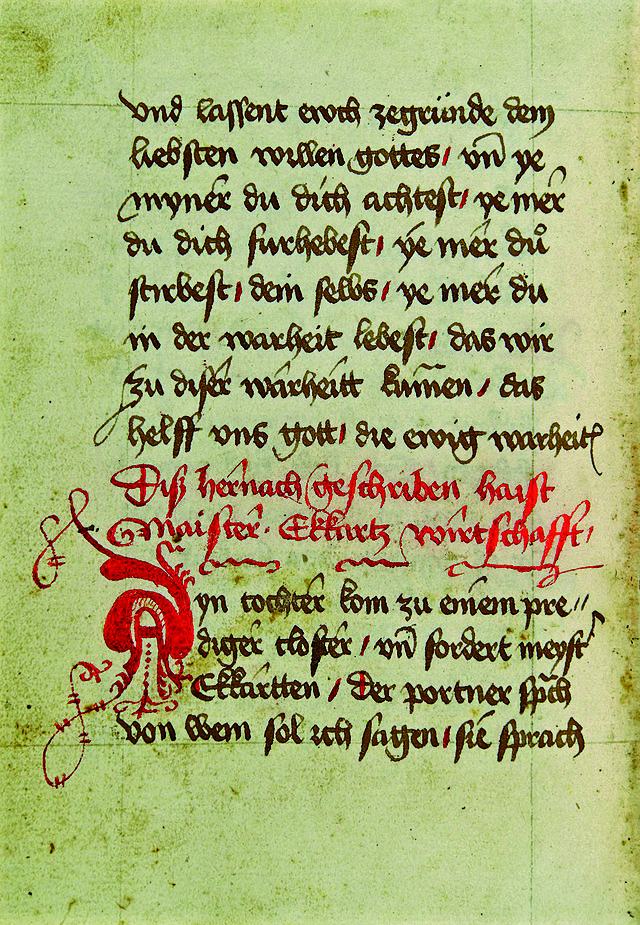 vnd lassent ewch zegrúnde dem
liebsten willen gottes / vn̄ ye
myner du dich achtest / ye mer
du dich furhebest / ye mer dů
stirbest / dein selbs / ye mer du
in der warheit lebest / das wir
zu diser warheitt kum̄en / das
helff vns gott / die ewig warheit
Diß hernach geschriben haist
Maister Ekkartz wirtschafft /
Ayn tochter kom zu einem pre//
diger closter / vn̄ fordert meyst'
Ekkartten / Der portner sp̄ch
von wem sol ich sagen / sie sprach